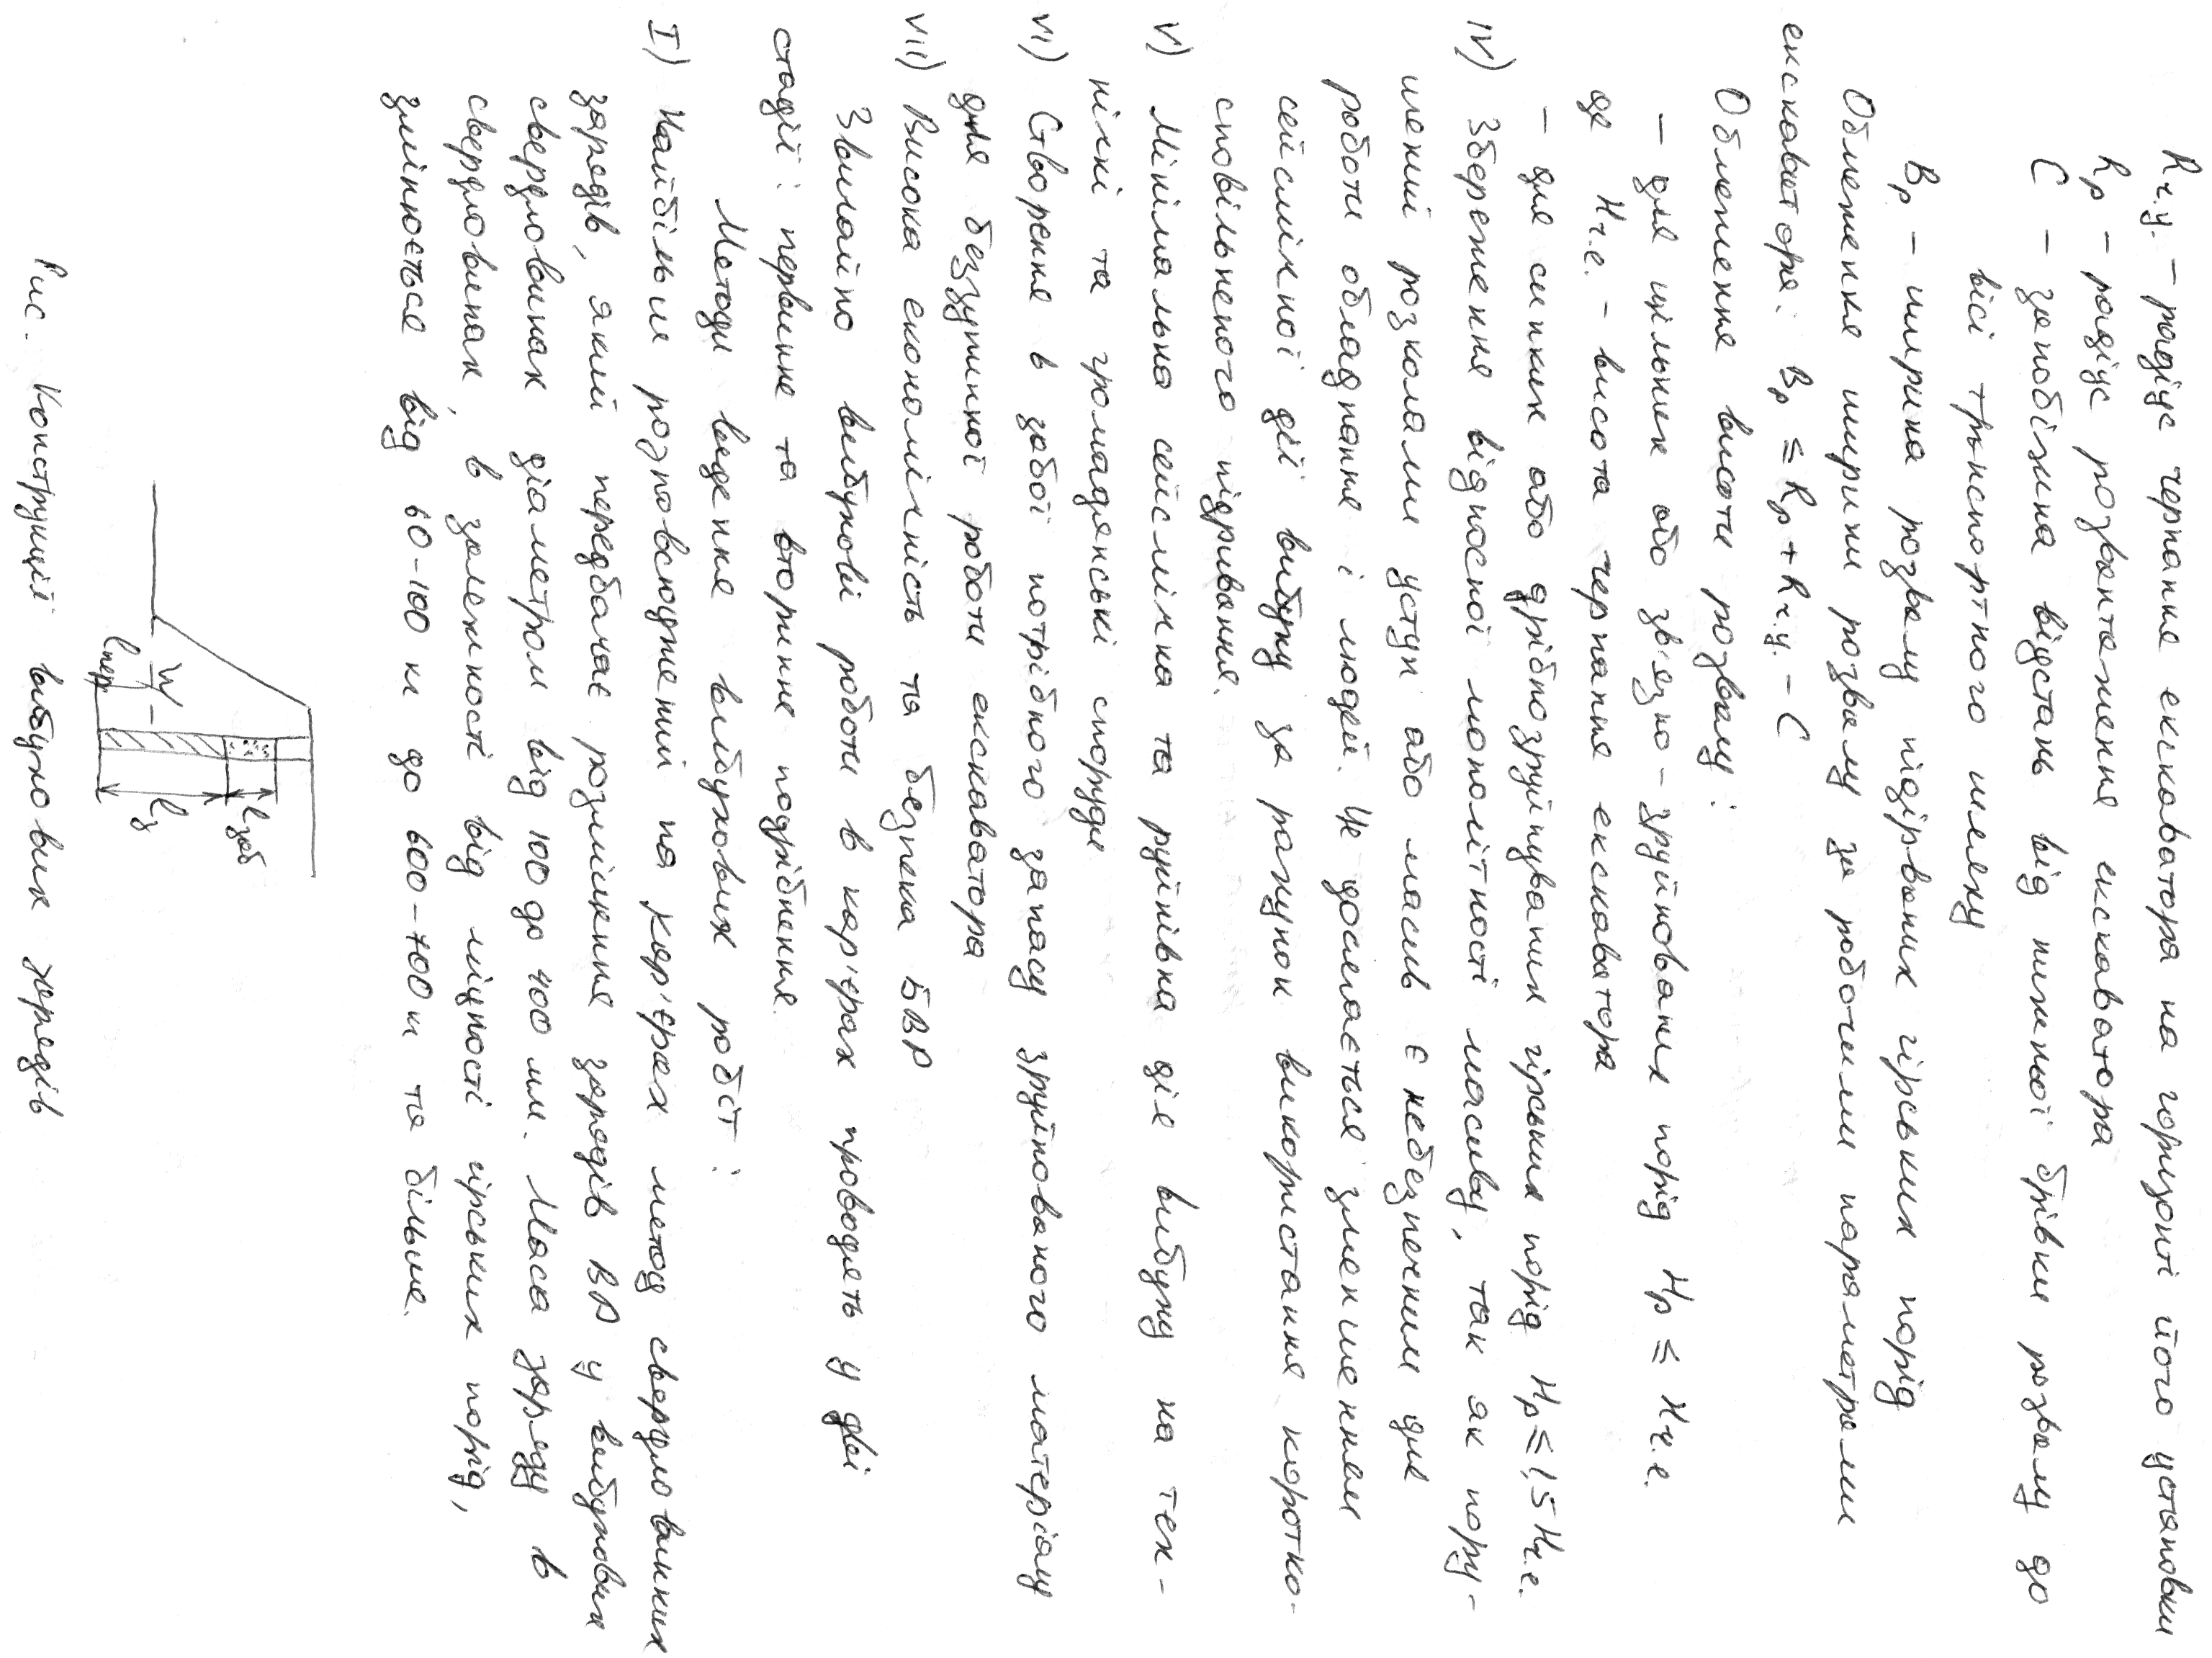 Rч.у. – радіус черпання екскаватора на горизонті його установки
Rр – радіус розвантаження екскаватора
С – запобіжна відстань від нижньої брівки розвалу до
вісі транспортного шляху
Вр – ширина розвалу підірваних гірських порід
Обмеження ширини розвалу за робочими параметрами
екскаватора: Вр ≤ Rр + Rч.у. – С
Обмеження висоти розвалу:
– для щільних або зв'язно-зруйнованих порід Нр ≤ Нч.е.
де Нч.е. – висота черпання екскаватора
– для сипких або дрібнозруйнуваних гірських порід Нр ≤ 1,5 Нч.е.
IV) Збереження відносної монолітності масиву, так як пору-
шений розколами уступ або масив є небезпечним для
роботи обладнання і людей. Це досягається зменшенням
сейсмічної дії вибуху за рахунок використання коротко-
сповільненого підривання.
V) Мінімальна сейсмічна та руйнівна дія вибуху на тех-
нічні та громадянські споруди
VI) Створення в забої потрібного запасу зруйнованого матеріалу
для беззупинної роботи екскаватора
VII) Висока економічність та безпека БВР
Звичайно вибухові роботи в кар'єрах проводять у дві
стадії: первинне та вторинне подрібнення.
Методи ведення вибухових робіт:
I) Найбільш розповсюджений на кар'єрах метод свердловинних
зарядів, який передбачає розміщення зарядів ВР у вибухових
свердловинах діаметром від 100 до 400 мм. Маса заряду в
свердловинах, в залежності від міцності гірських порід,
змінюється від 60-100 кг до 600-700 кг та більше.
W
lпер
lз
lзаб
Рис. Конструкції вибухових зарядів